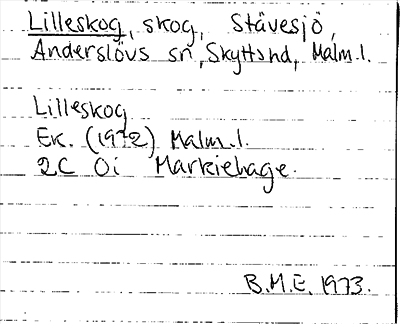 Lilleskog, skog, Stävesjö,
Anderslövs sn, Skytts hd, Malm.l.
Lilleskog
Ek. (1972) Malm.l.
2C 0i Markiehage.
B.M.E. 1973.